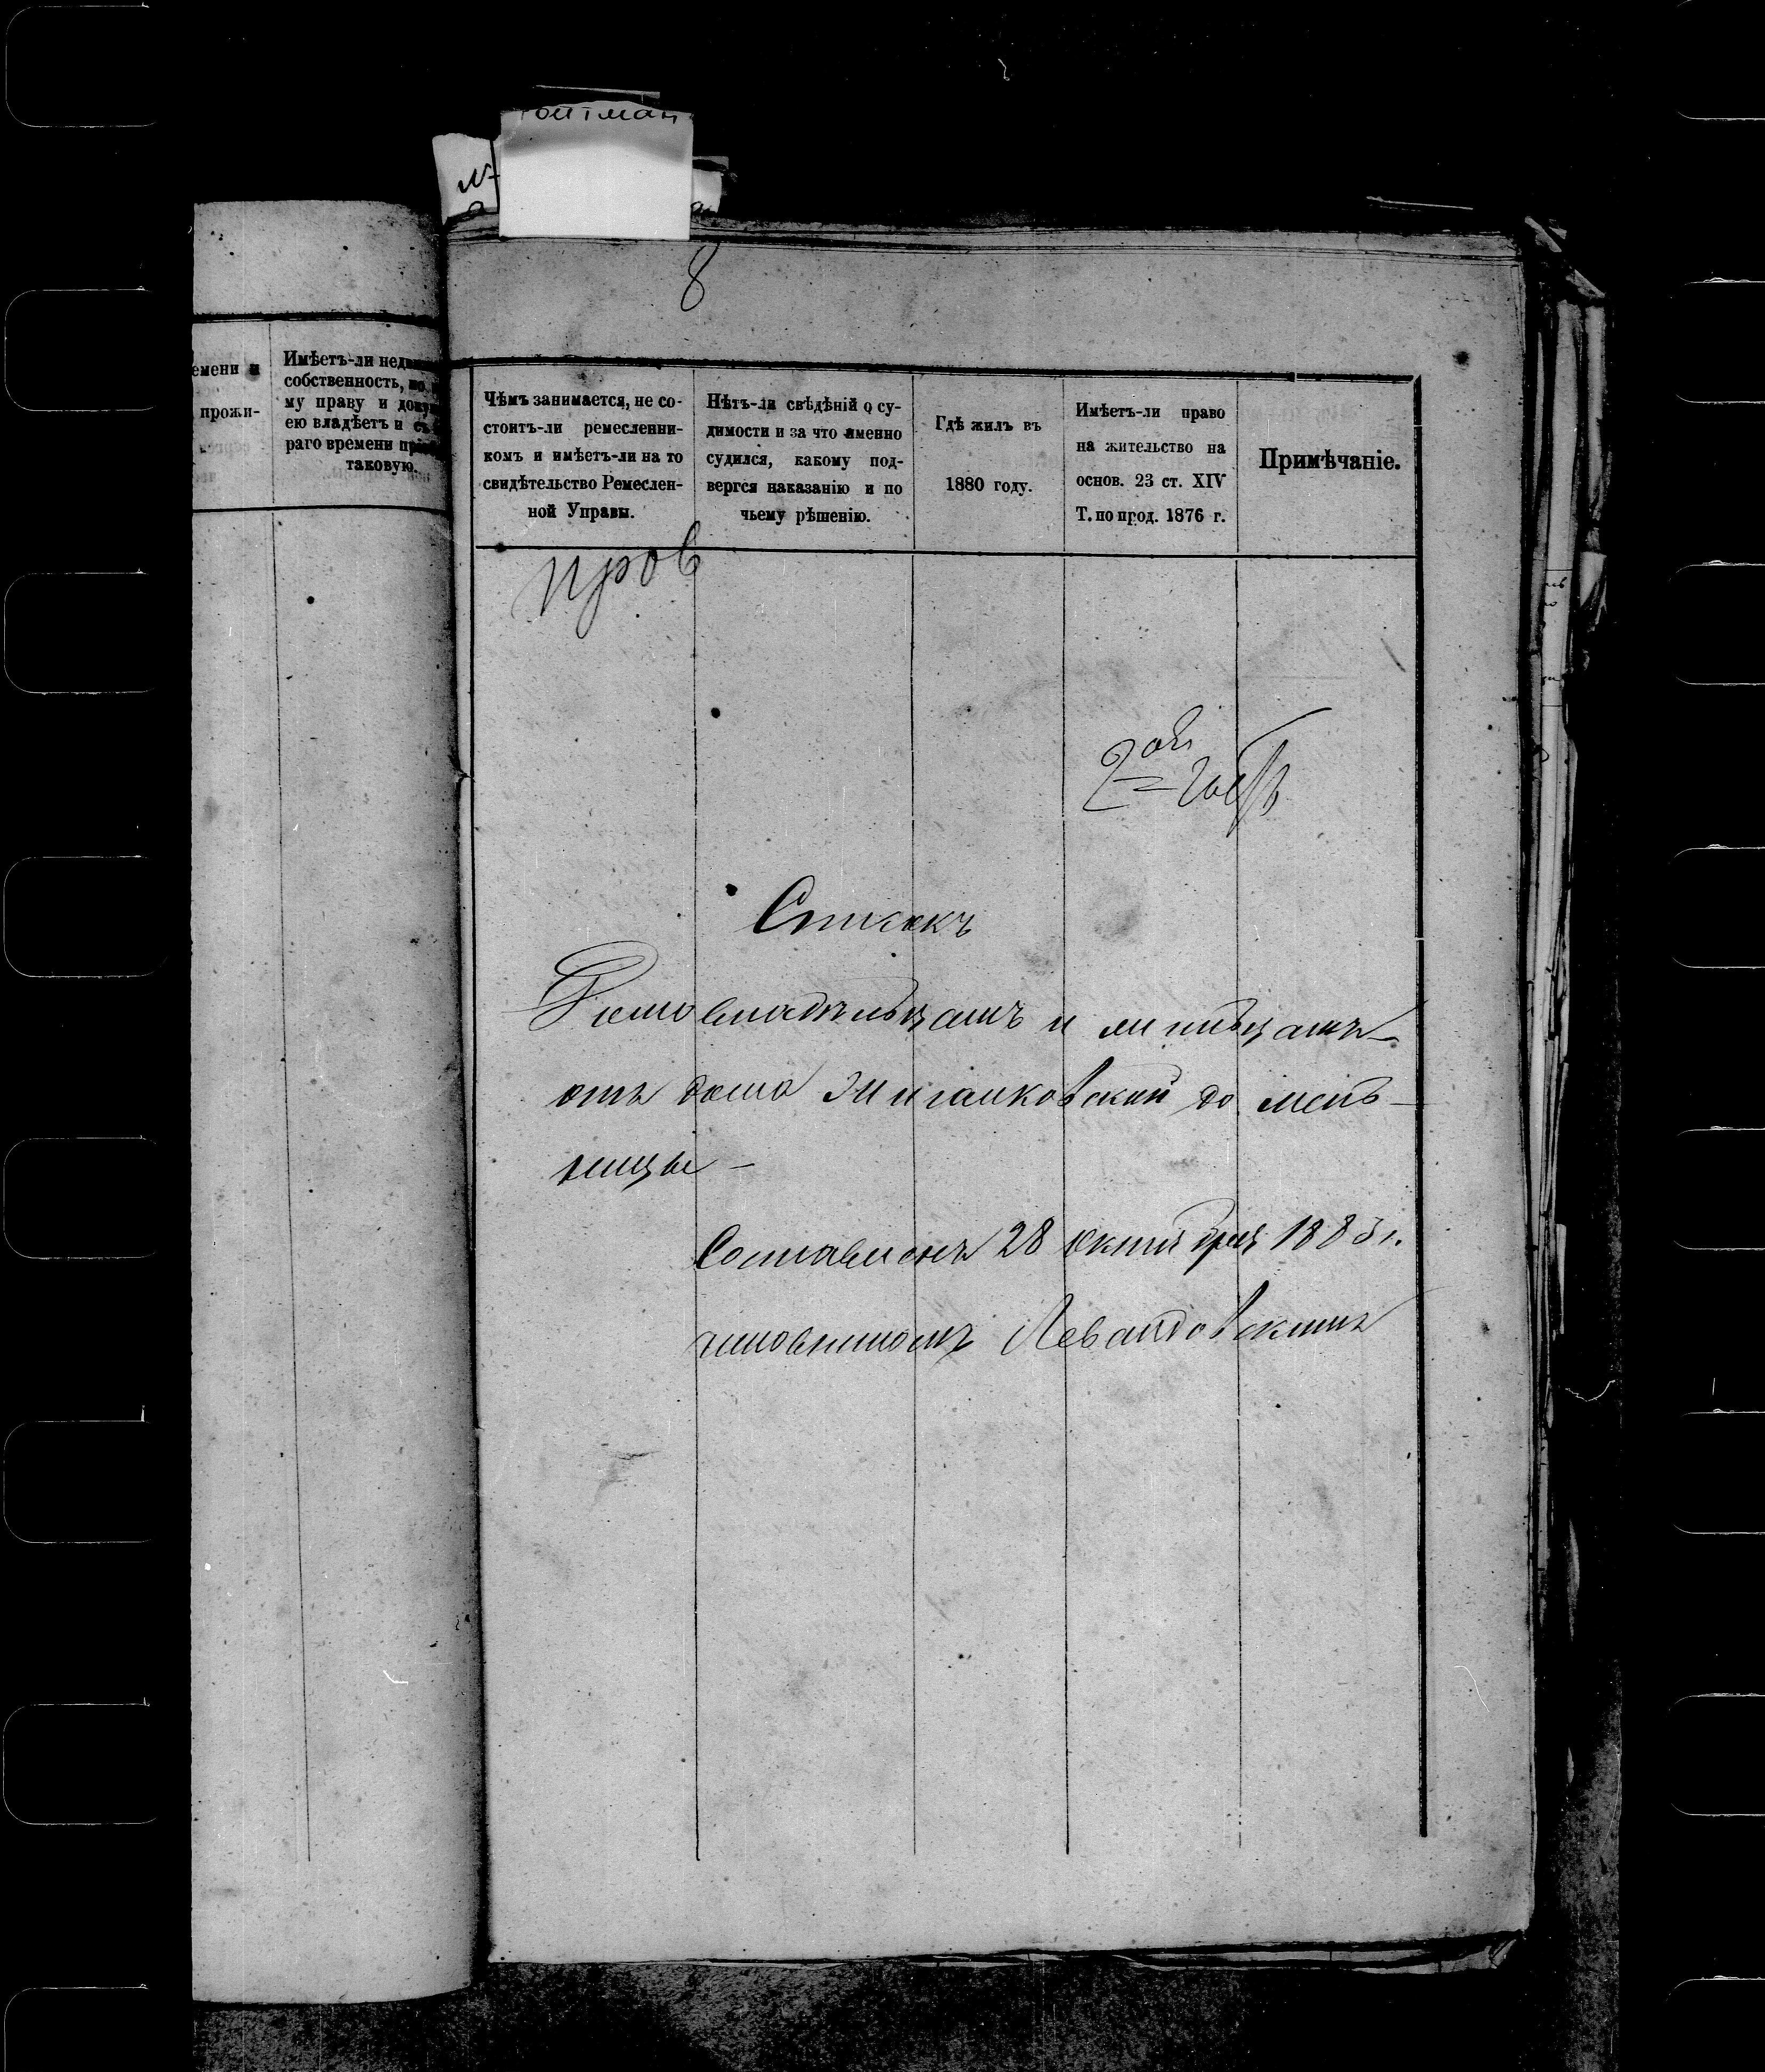 ойтман
8
емени и
прожи-
Имѣетъ-ли недви
собственность, по
му праву и доку
ею владѣетъ и съ
раго времени прі
таковую.
Чѣмъ занимается, не со-
стоитъ-ли ремесленни-
комъ и имѣетъ-ли на то
свидѣтельство Ремеслен-
ной Управы.
Нѣтъ-ли свѣдѣній о су-
димости и за что именно
судился, какому под-
вергся наказанію и по
чьему рѣшенію.
Гдѣ жилъ въ
1880 году.
Имѣетъ-ли право
на жительство на
основ. 23 ст. XIV
Т. по прод. 1876 г.
Примѣчаніе.
пров
2ой
Списокъ
Домовладѣльцамъ и
отъ дома до мель-
ницы
Составленъ 28 октября 1883 г.
чиновникомъ Левандовскимъ